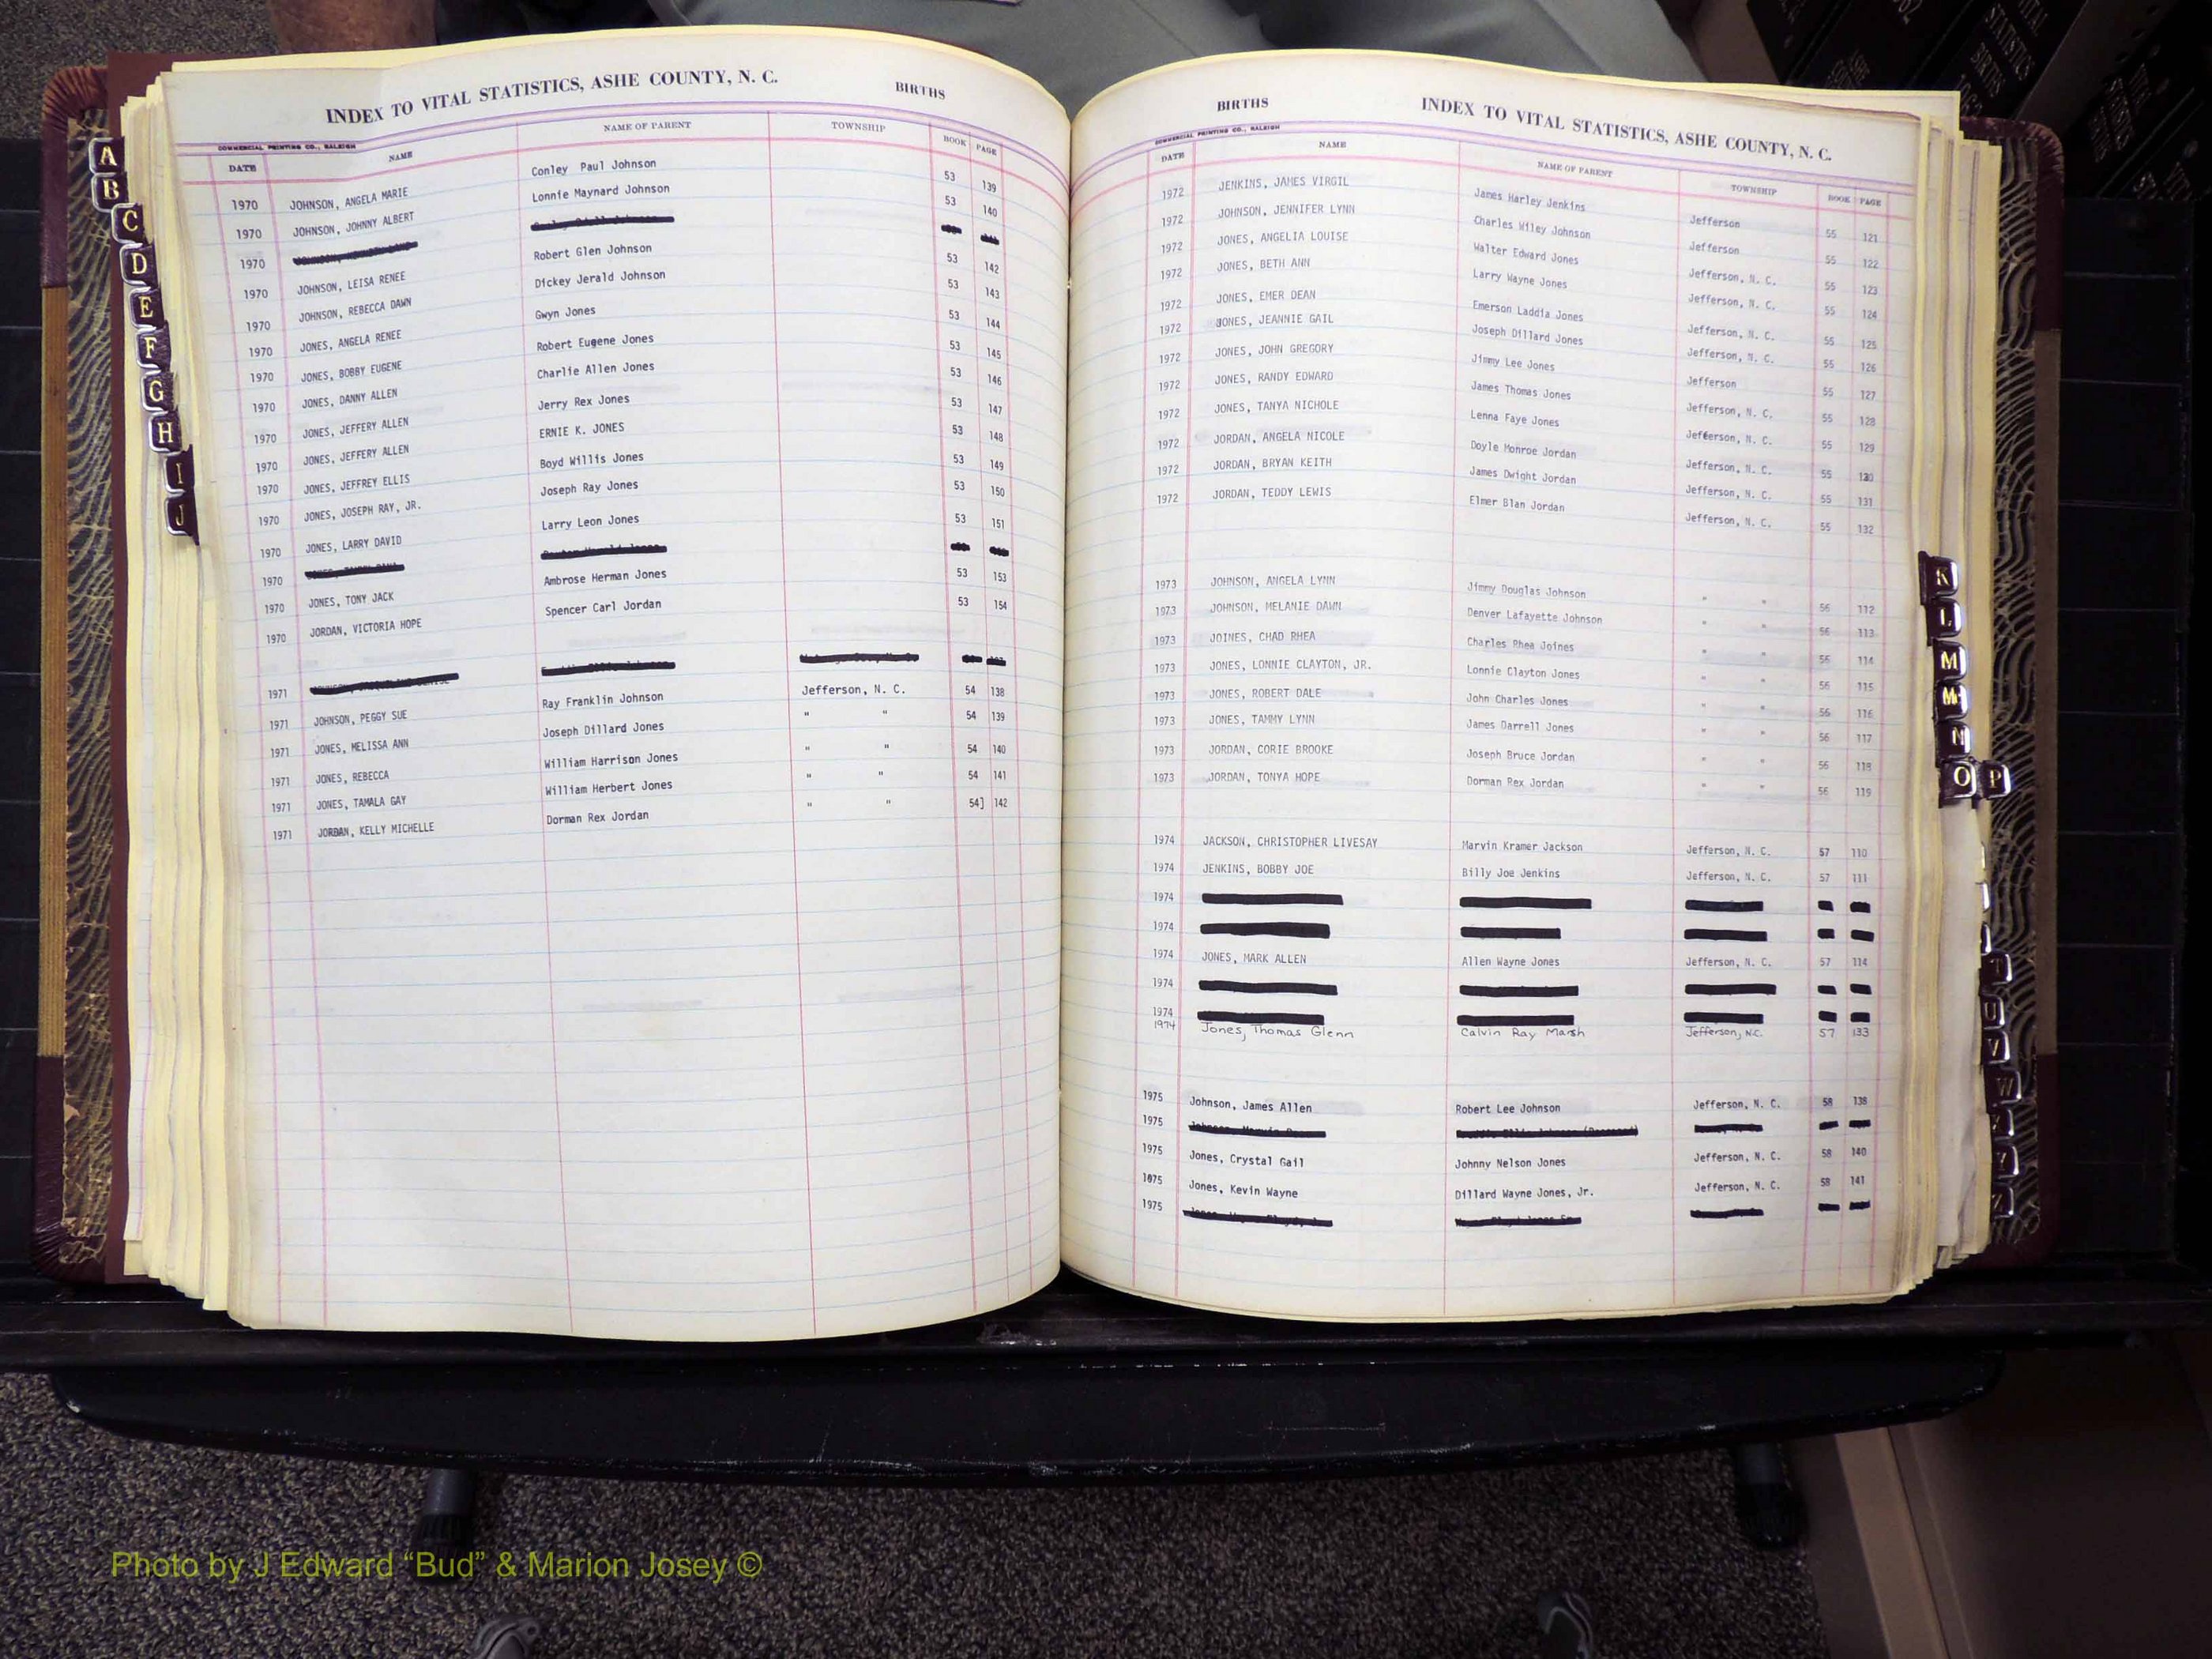 INDEX TO VITAL STATISTICS, ASHE COUNTY, N. C. BIRTHS
COMMERCIAL PRINTING CO., RALEIGH
DATE NAME NAME OF PARENT TOWNSHIP BOOK PAGE
1970 JOHNSON, ANGELA MARIE Conley Paul Johnson 53 139
1970 JOHNSON, JOHNNY ALBERT Lonnie Maynard Johnson 53 140
1970
1970 JOHNSON, LEISA RENEE Robert Glen Johnson 53 142
1970 JOHNSON, REBECCA DAWN Dickey Jerald Johnson 53 143
1970 JONES, ANGELA RENEE Gwyn Jones 53 144
1970 JONES, BOBBY EUGENE Robert Eugene Jones 53 145
1970 JONES, DANNY ALLEN Charlie Allen Jones 53 146
1970 JONES, JEFFERY ALLEN Jerry Rex Jones 53 147
1970 JONES, JEFFERY ALLEN ERNIE K. JONES 53 148
1970 JONES, JEFFREY ELLIS Boyd Willis Jones 53 149
1970 JONES, JOSEPH RAY, JR. Joseph Ray Jones 53 150
1970 JONES, LARRY DAVID Larry Leon Jones 53 151
1970
1970 JONES, TONY JACK Ambrose Herman Jones 53 153
1970 JORDAN, VICTORIA HOPE Spencer Carl Jordan 53 154
1971
1971 JOHNSON, PEGGY SUE Ray Franklin Johnson Jefferson, N. C. 54 138
1971 JONES, MELISSA ANN Joseph Dillard Jones " " 54 139
1971 JONES, REBECCA William Harrison Jones " " 54 140
1971 JONES, TAMALA GAY William Herbert Jones " " 54 141
1971 JORDAN, KELLY MICHELLE Dorman Rex Jordan " " 54] 142
A
B
C
D
E
F
G
H
I
J
BIRTHS INDEX TO VITAL STATISTICS, ASHE COUNTY, N. C.
COMMERCIAL PRINTING CO., RALEIGH
DATE NAME NAME OF PARENT TOWNSHIP BOOK PAGE
1972 JENKINS, JAMES VIRGIL James Harley Jenkins Jefferson 55 121
1972 JOHNSON, JENNIFER LYNN Charles Wiley Johnson Jefferson 55 122
1972 JONES, ANGELIA LOUISE Walter Edward Jones Jefferson, N. C. 55 123
1972 JONES, BETH ANN Larry Wayne Jones Jefferson, N. C. 55 124
1972 JONES, EMER DEAN Emerson Laddia Jones Jefferson, N. C. 55 125
1972 JONES, JEANNIE GAIL Joseph Dillard Jones Jefferson, N. C. 55 126
1972 JONES, JOHN GREGORY Jimmy Lee Jones Jefferson 55 127
1972 JONES, RANDY EDWARD James Thomas Jones Jefferson, N. C. 55 128
1972 JONES, TANYA NICHOLE Lenna Faye Jones Jefferson, N. C. 55 129
1972 JORDAN, ANGELA NICOLE Doyle Monroe Jordan Jefferson, N. C. 55 130
1972 JORDAN, BRYAN KEITH James Dwight Jordan Jefferson, N. C. 55 131
1972 JORDAN, TEDDY LEWIS Elmer Blan Jordan Jefferson, N. C. 55 132
1973 JOHNSON, ANGELA LYNN Jimmy Douglas Johnson " " 56 112
1973 JOHNSON, MELANIE DAWN Denver Lafayette Johnson " " 56 113
1973 JOINES, CHAD RHEA Charles Rhea Joines " " 56 114
1973 JONES, LONNIE CLAYTON, JR. Lonnie Clayton Jones " " 56 115
1973 JONES, ROBERT DALE John Charles Jones " " 56 116
1973 JONES, TAMMY LYNN James Darrell Jones " " 56 117
1973 JORDAN, CORIE BROOKE Joseph Bruce Jordan " " 56 118
1973 JORDAN, TONYA HOPE Dorman Rex Jordan " " 56 119
1974 JACKSON, CHRISTOPHER LIVESAY Marvin Kramer Jackson Jefferson, N. C. 57 110
1974 JENKINS, BOBBY JOE Billy Joe Jenkins Jefferson, N. C. 57 111
1974
1974
1974 JONES, MARK ALLEN Allen Wayne Jones Jefferson, N. C. 57 114
1974
1974
1974 Jones, Thomas Glenn Calvin Ray Marsh Jefferson, N.C. 57 133
1975 Johnson, James Allen Robert Lee Johnson Jefferson, N. C. 58 138
1975
1975 Jones, Crystal Gail Johnny Nelson Jones Jefferson, N. C. 58 140
1975 Jones, Kevin Wayne Dillard Wayne Jones, Jr. Jefferson, N. C. 58 141
1975
K
L
M
Mc
N
O P
T
U
V
W
Y
Photo by J Edward “Bud” & Marion Josey ©